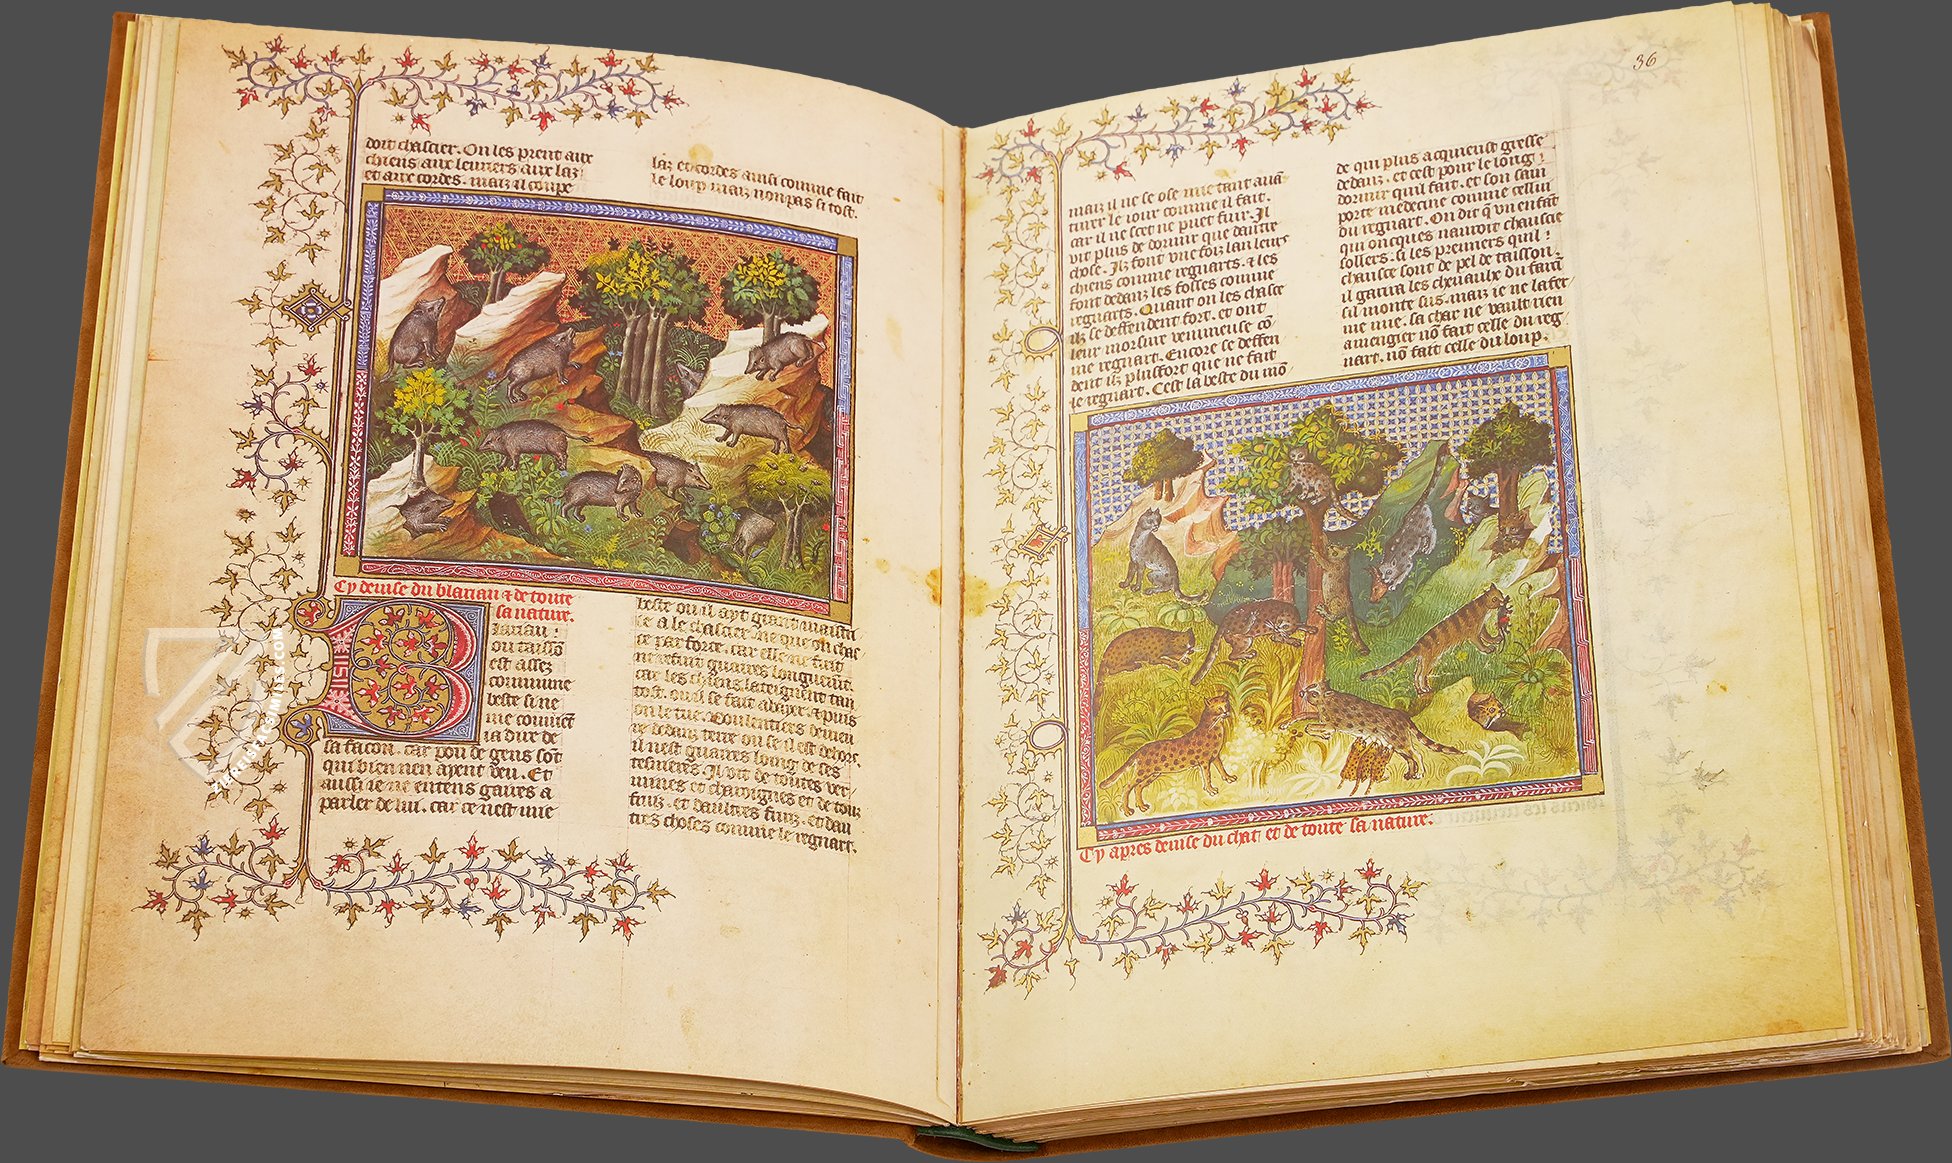 doit chascier. On les prent aux
chiens aux leuriers aux laz
et aux cordes. maiz il coupe
laz et cordes ainsi comme fait
le loup maiz non pas si tost.
Cy deuise du blariau et de toute
sa nature.
Blariau
ou taisson
est assez
commune
beste si ne
me couuient
ia dire de
sa facon. car pou de gens sont
qui bien nen ayent veu. Et
aussi ie ne entens gaires a
parler de lui. car ce nest mie
beste ou il ayt grant maistri
se a le chascier. ne que on chas
ce par force. car elle ne fuit
ne refuit guaires longuement.
car les chiens lateignent tan
tost. ou il se fait abayer et puis
on le tue. Voulentiers demeu
re dedanz terre ou se il est dehors
il nest guaires loing de ses
tesnieres. Il vit de toutes ver
mines et charoignes et de touz
fruiz. et dautres fruiz. et dau
tres choses comme le regnart.
36
maiz il ne se ose mie tant auan
turer le iour comme il fait.
car il ne scet ne puet fuir. Il
vit plus de dormir que dautre
chose. Ilz font vne foiz lan leurs
chiens comme regnarts. et les
font dedanz les fosses comme
regnarts. Quant on les chasse
ilz se deffendent fort. et ont
leur morsure venimeuse com
me regnart. Encore se deffen
dent ilz plus fort que ne fait
le regnart. Cest la beste du mon
de qui plus acquieust gresse
dedanz. et cest pour le long
dormir quil fait. et son sain
porte medecine comme cellui
du regnart. On dit que vn enfant
qui oncques nauroit chauscie
solliers. si les premiers quil
chausce sont de pel de taisson
il garira les cheuaulx du farcin
sil monte sus. maiz ie ne lafer
me mie. sa char ne vault rien
a mengier non fait celle du reg
nart. non fait celle du loup.
Cy apres deuise du chat et de toute sa nature.
ZIEREIS
FACSIMILES.com